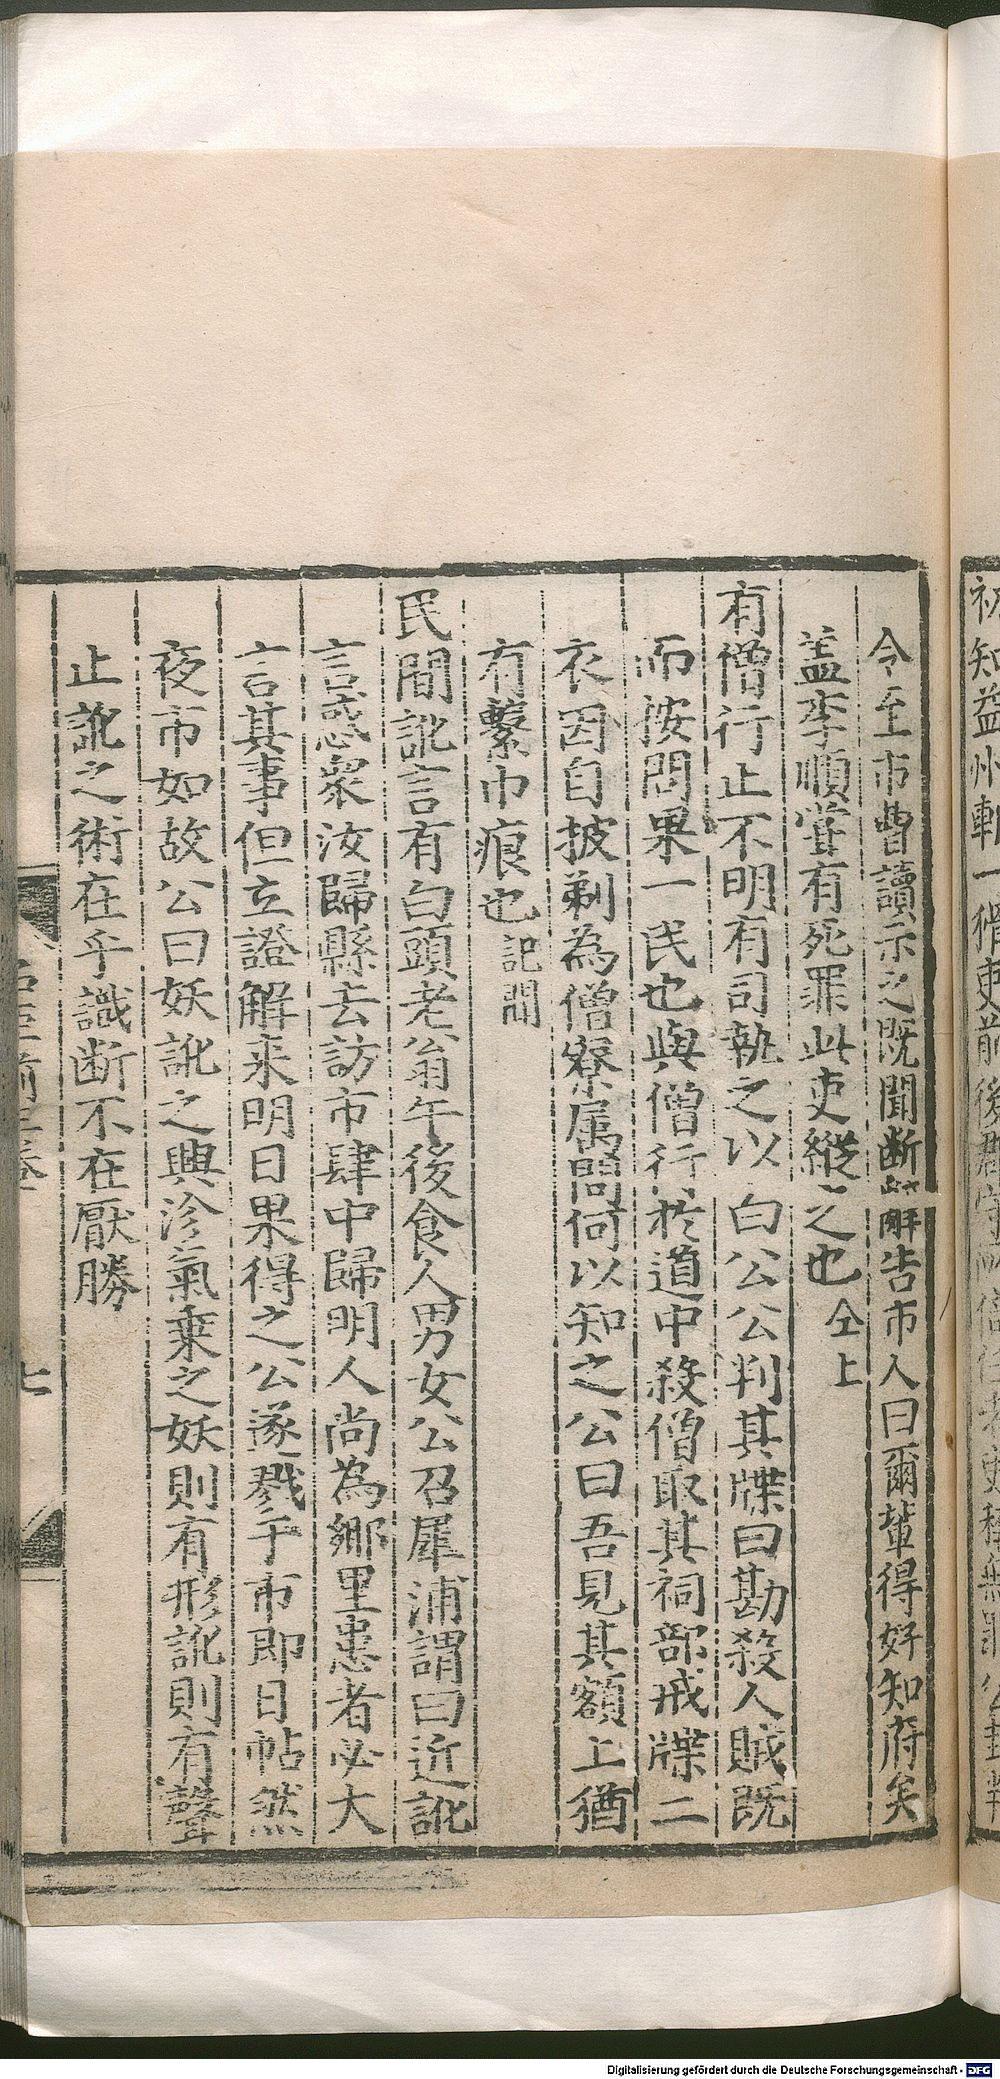 令至市曹讀示之既聞断辤告市人曰爾輩得好知府矣
盖李順嘗有死罪此吏縱之也 仝上
有僧行止不明有司執之以白公公判其牒曰勘殺人賊既
而按問果一民也與僧行於道中殺僧取其祠部戒牒二
衣因自披剃為僧寮属問何以知之公曰吾見其額上猶
有繫巾痕也 記聞
民間訛言有白頭老翁午後食人男女公召犀浦謂曰近訛
言惑衆汝歸縣去訪市肆中歸明人尚為鄉里患者必大
言其事但立證解来明日果得之公遂戮于市即日帖然
夜市如故公曰妖訛之興沴氣乗之妖則有形訛則有聲
止訛之術在乎識断不在厭勝
七
初知益州斬一猾吏前後郡守
Digitalisierung gefördert durch die Deutsche Forschungsgemeinschaft - DFG